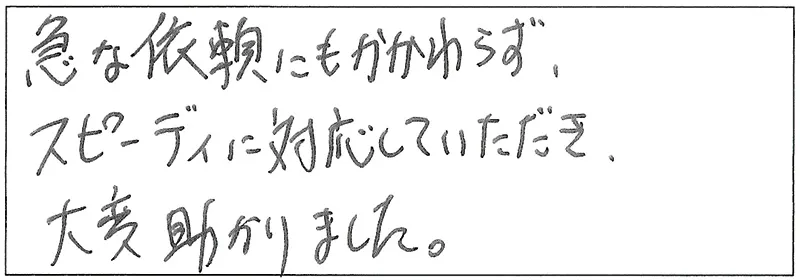 急な依頼にもかかわらず、
スピーディに対応していただき、
大変助かりました。